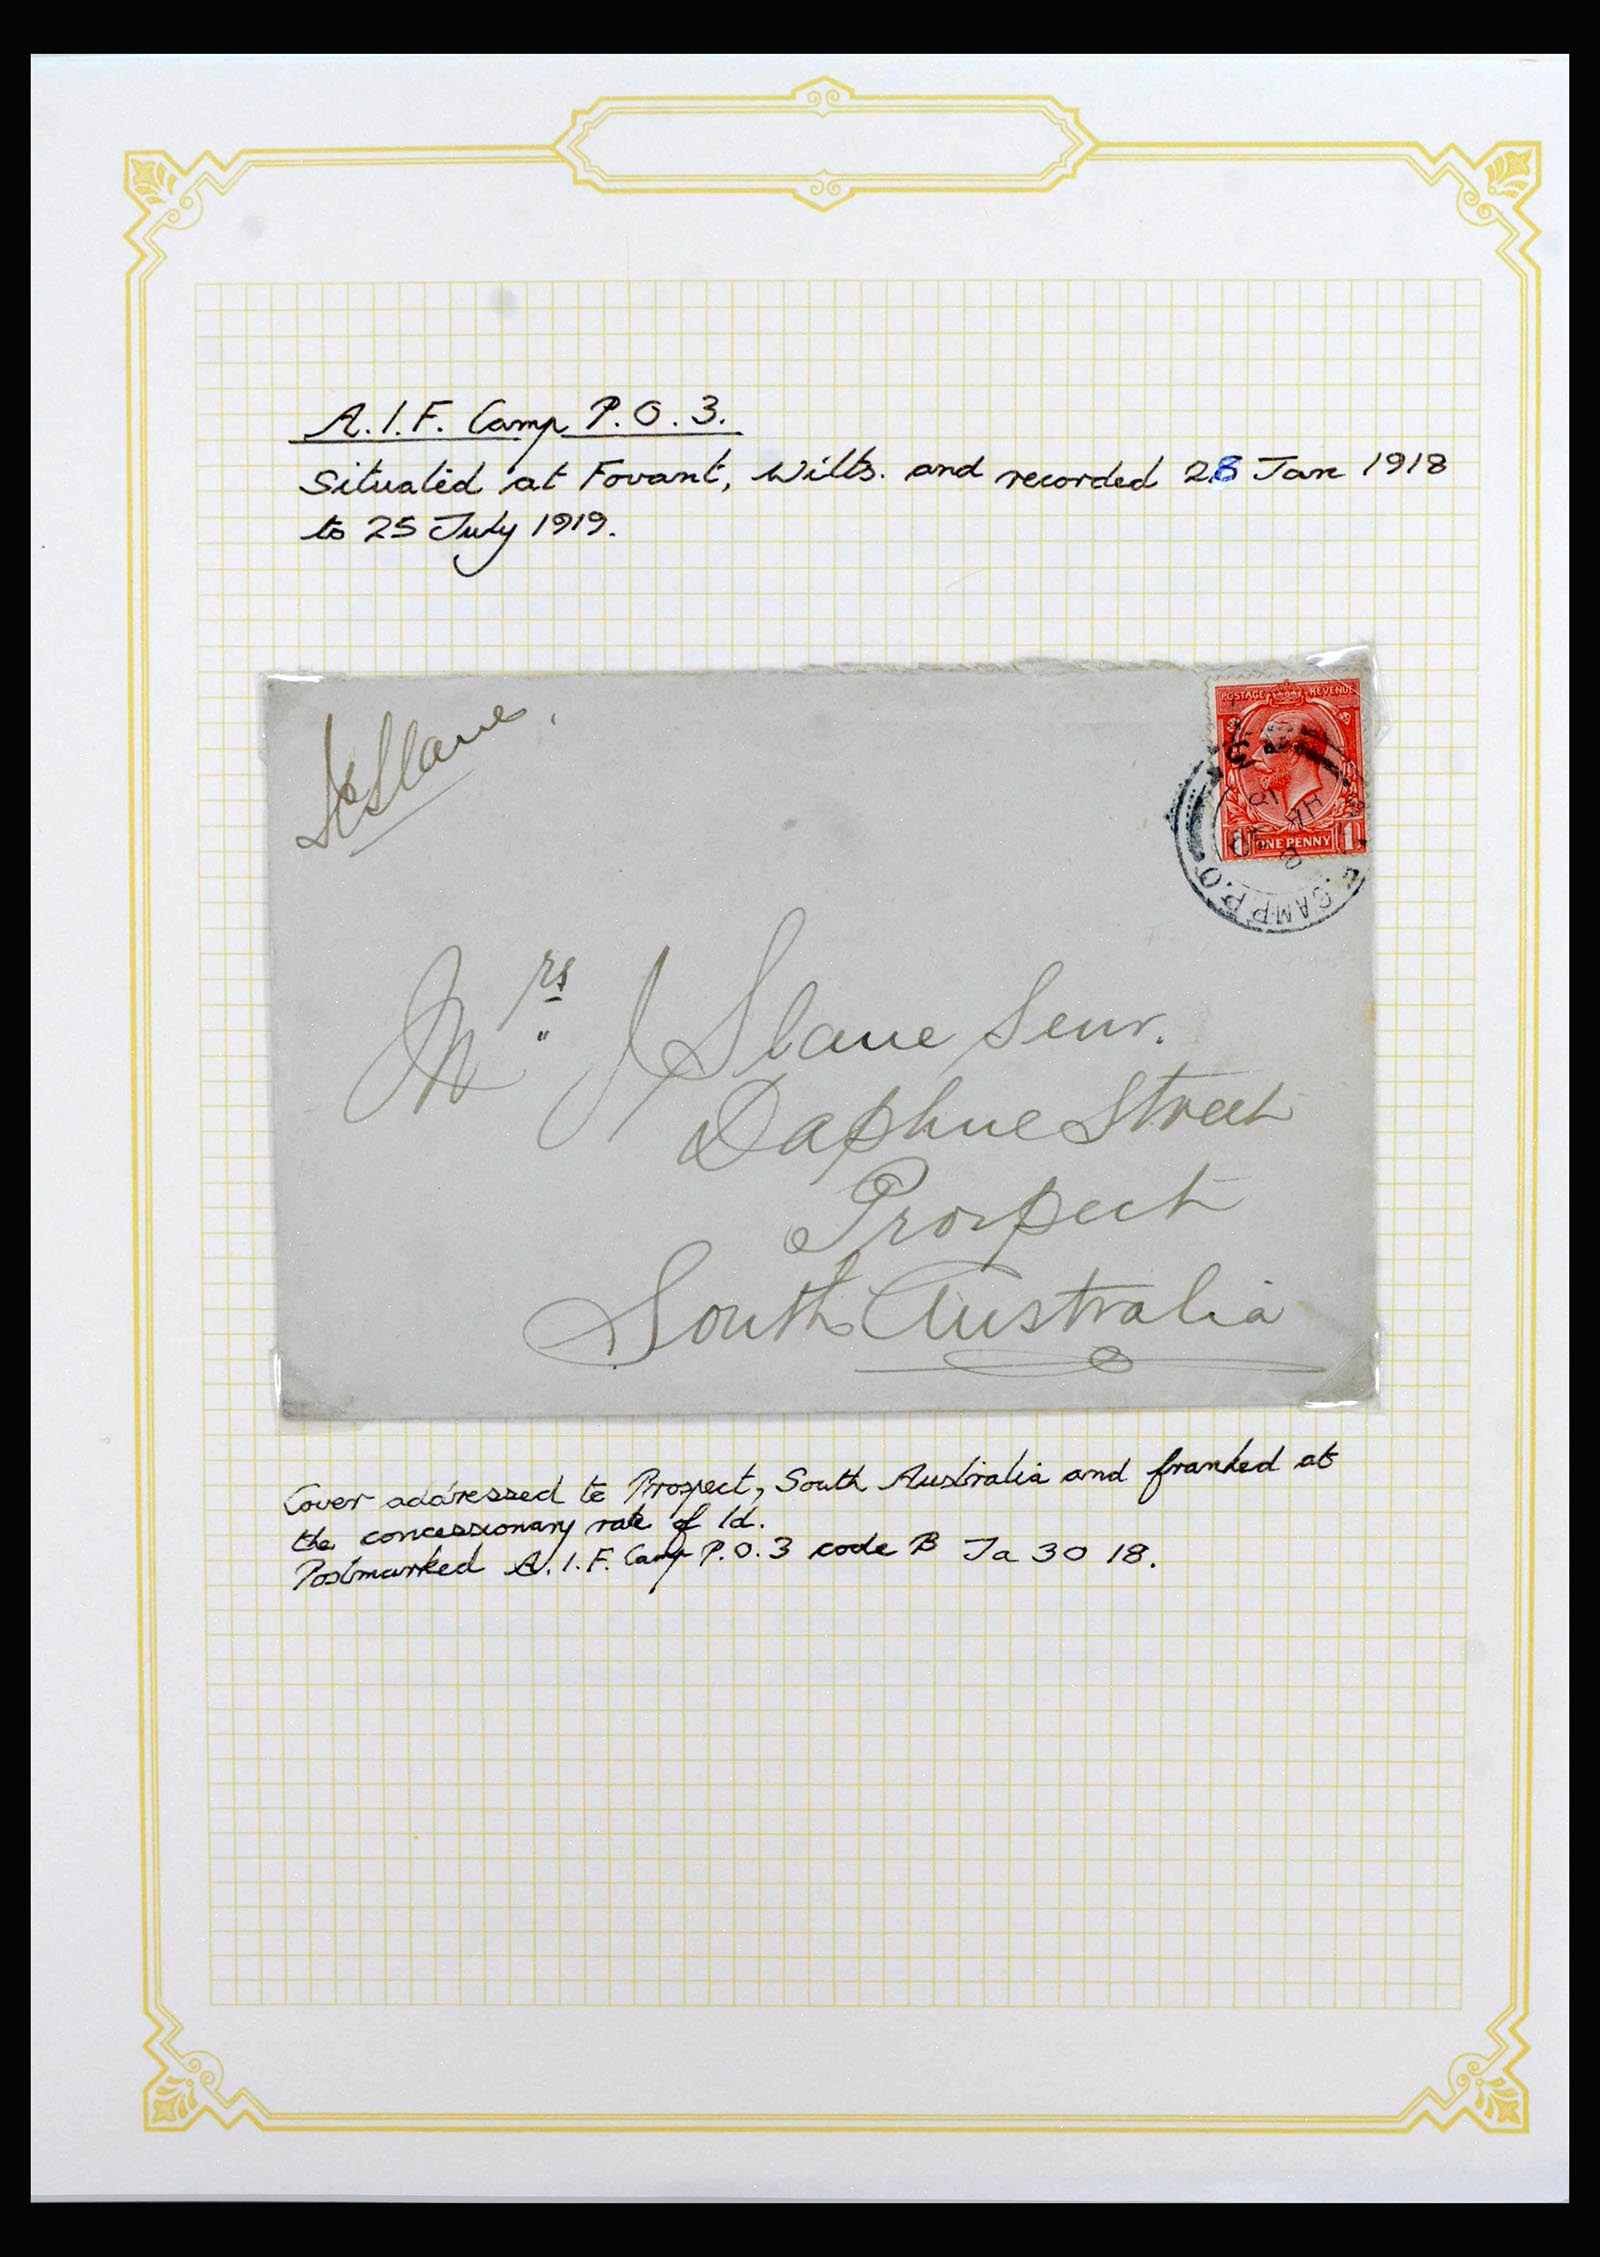 A.I.F. Camp P.O.3.
Situated at Fovant, Wilts. and recorded 28 Jan 1918
to 25 July 1919.
Slane.
POSTAGE REVENUE
1 ONE PENNY 1
CAMP P.O.
Mrs J Slane Senr.
Daphne Street
Prospect
South Australia
Cover addressed to Prospect, South Australia and franked at
the concessionary rate of 1d.
Postmarked A.I.F. Camp P.O.3 code B Ja 30 18.